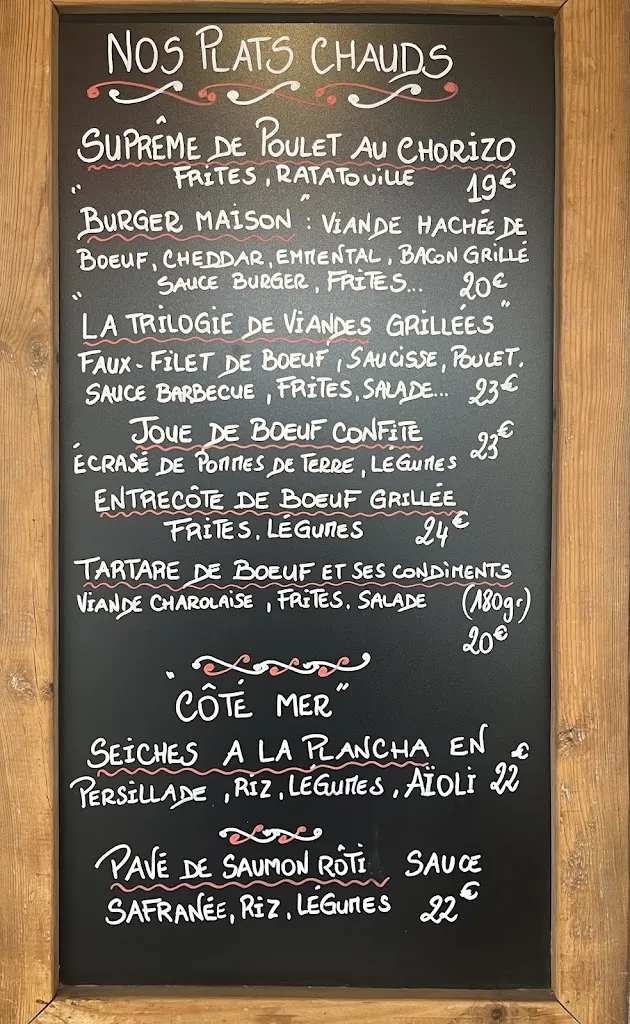 NOS PLATS CHAUDS
SUPRÊME DE POULET AU CHORIZO
FRITES, RATATOUILLE 19€
"BURGER MAISON" : VIANDE HACHÉE DE
BOEUF, CHEDDAR, EMMENTAL, BACON GRILLÉ
SAUCE BURGER, FRITES... 20€
"LA TRILOGIE DE VIANDES GRILLÉES"
FAUX-FILET DE BOEUF, SAUCISSE, POULET.
SAUCE BARBECUE, FRITES, SALADE... 23€
JOUE DE BOEUF CONFITE
ÉCRASÉ DE POMMES DE TERRE, LÉGUMES 23€
ENTRECÔTE DE BOEUF GRILLÉE
FRITES, LÉGUMES 24€
TARTARE DE BOEUF ET SES CONDIMENTS
VIANDE CHAROLAISE, FRITES. SALADE (180gr)
20€
"CÔTÉ MER"
SEICHES A LA PLANCHA EN
PERSILLADE, RIZ, LÉGUMES, AÏOLI 22€
PAVÉ DE SAUMON RÔTI SAUCE
SAFRANÉE, RIZ, LÉGUMES 22€